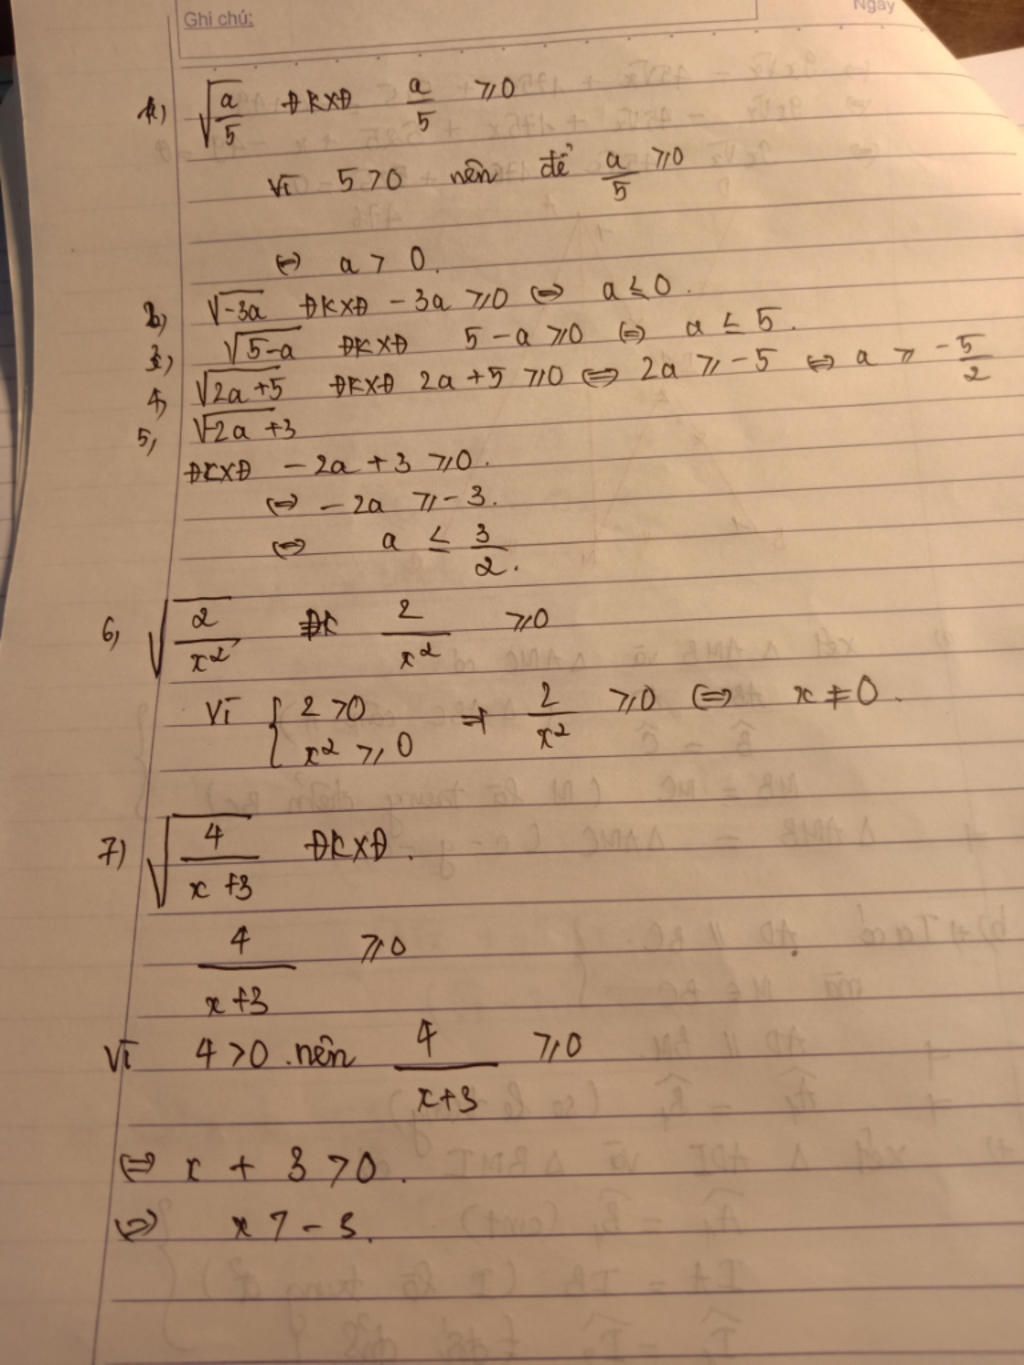 Ghi chú:
Ngày
1) √(a/5) ĐKXĐ a/5 ≥ 0
Vì 5 > 0 nên để a/5 ≥ 0
⇔ a > 0.
2) √(-3a) ĐKXĐ - 3a ≥ 0 ⇔ a ≤ 0.
3) √(5-a) ĐKXĐ 5 - a ≥ 0 ⇔ a ≤ 5.
4, √(2a+5) ĐKXĐ 2a + 5 ≥ 0 ⇔ 2a ≥ -5 ⇔ a ≥ -5/2
5, √(-2a+3)
ĐKXĐ - 2a + 3 ≥ 0.
⇔ - 2a ≥ - 3.
⇔ a ≤ 3/2.
6, √(2/x²) ĐK 2/x² ≥ 0
Vì { 2 > 0
x² ≥ 0 ⇒ 2/x² ≥ 0 ⇔ x ≠ 0.
7) √(4/(x+3)) ĐKXĐ.
4/(x+3) ≥ 0
Vì 4 > 0 nên 4/(x+3) ≥ 0
⇔ x + 3 > 0.
⇔ x > - 3.